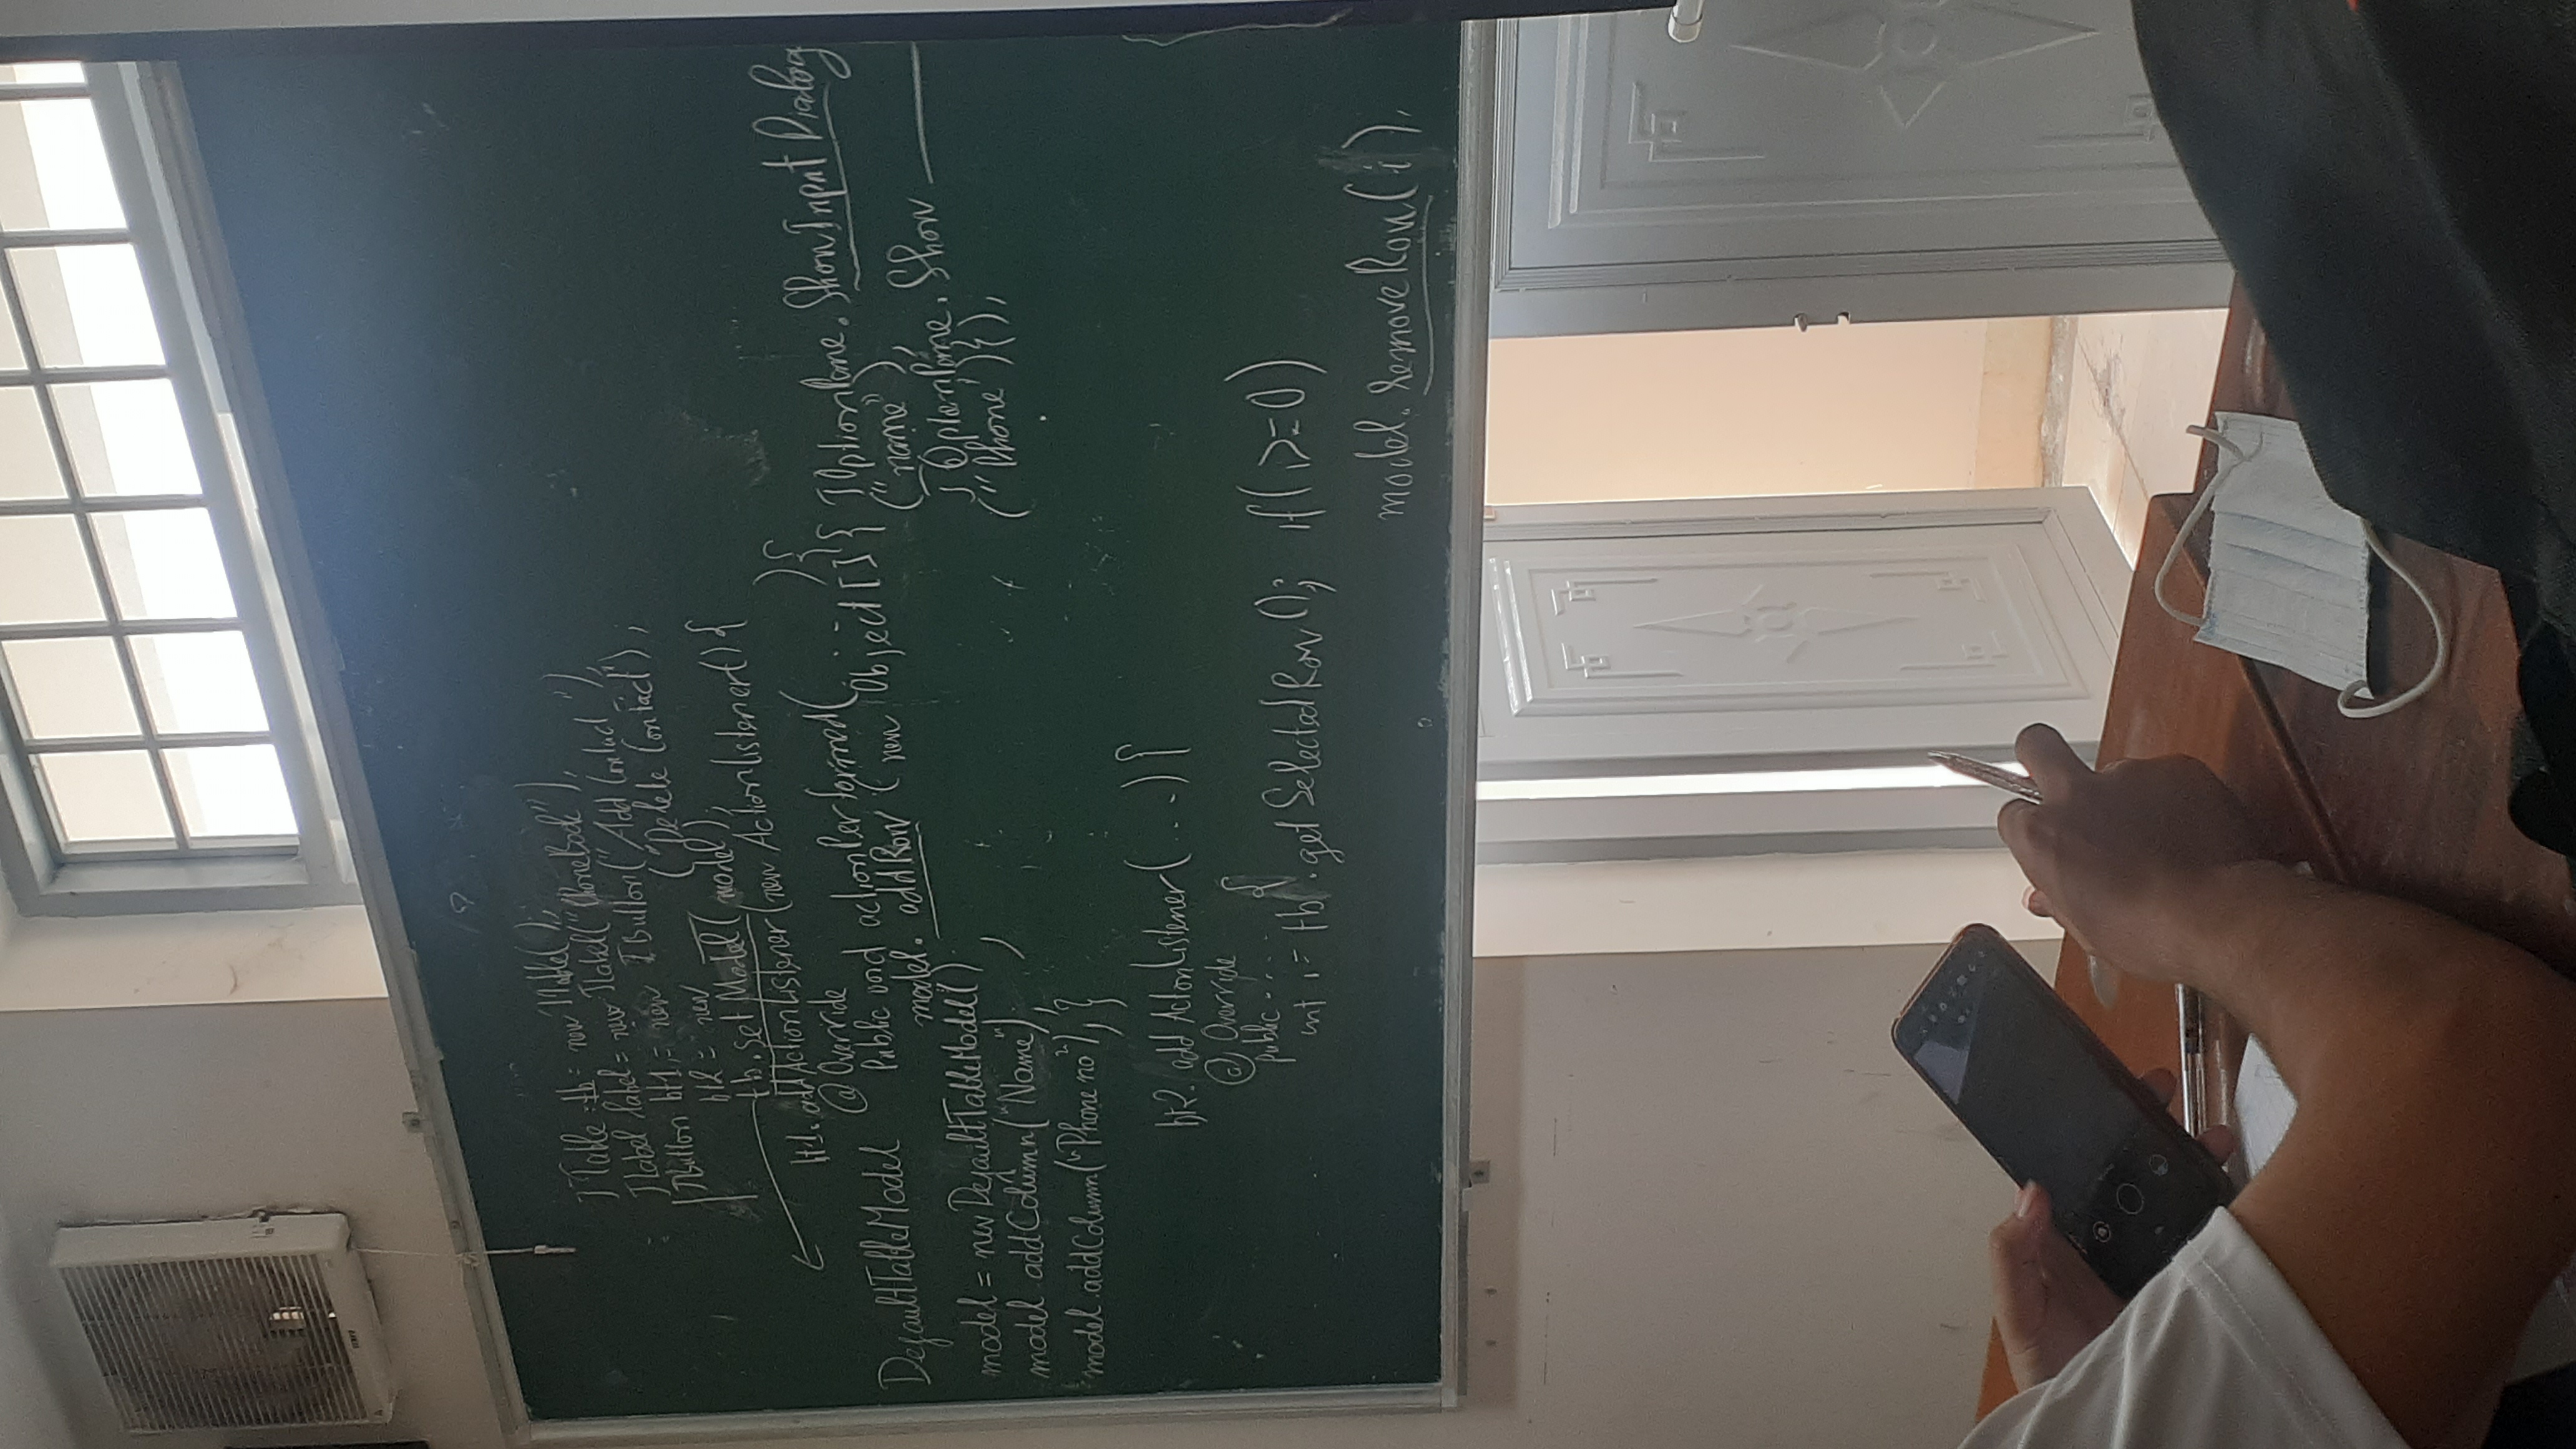 JTable tb = new JTable();
JLabel label = new JLabel("PhoneBook"),
JButton bt1 = new JButton("Add Contact"),
bt2 = new ("Delete Contact"),
tb.setModel(model);
bt1.addActionListener(new ActionListener(){
@Override
Public void actionPerformed( ){
model.addRow(new Object[]{ JOptionPane.ShowInputDialog
("name"),
JOptionPane.Show
("Phone")});
DefaultTableModel
model = new DefaultTableModel()
model.addColumn("Name");
model.addColumn("Phone no"), }
bt2.addActionListener(...){
@Override
public ..... {
int i = tb.getSelectedRow(); if(i>=0)
model.removeRow(i),